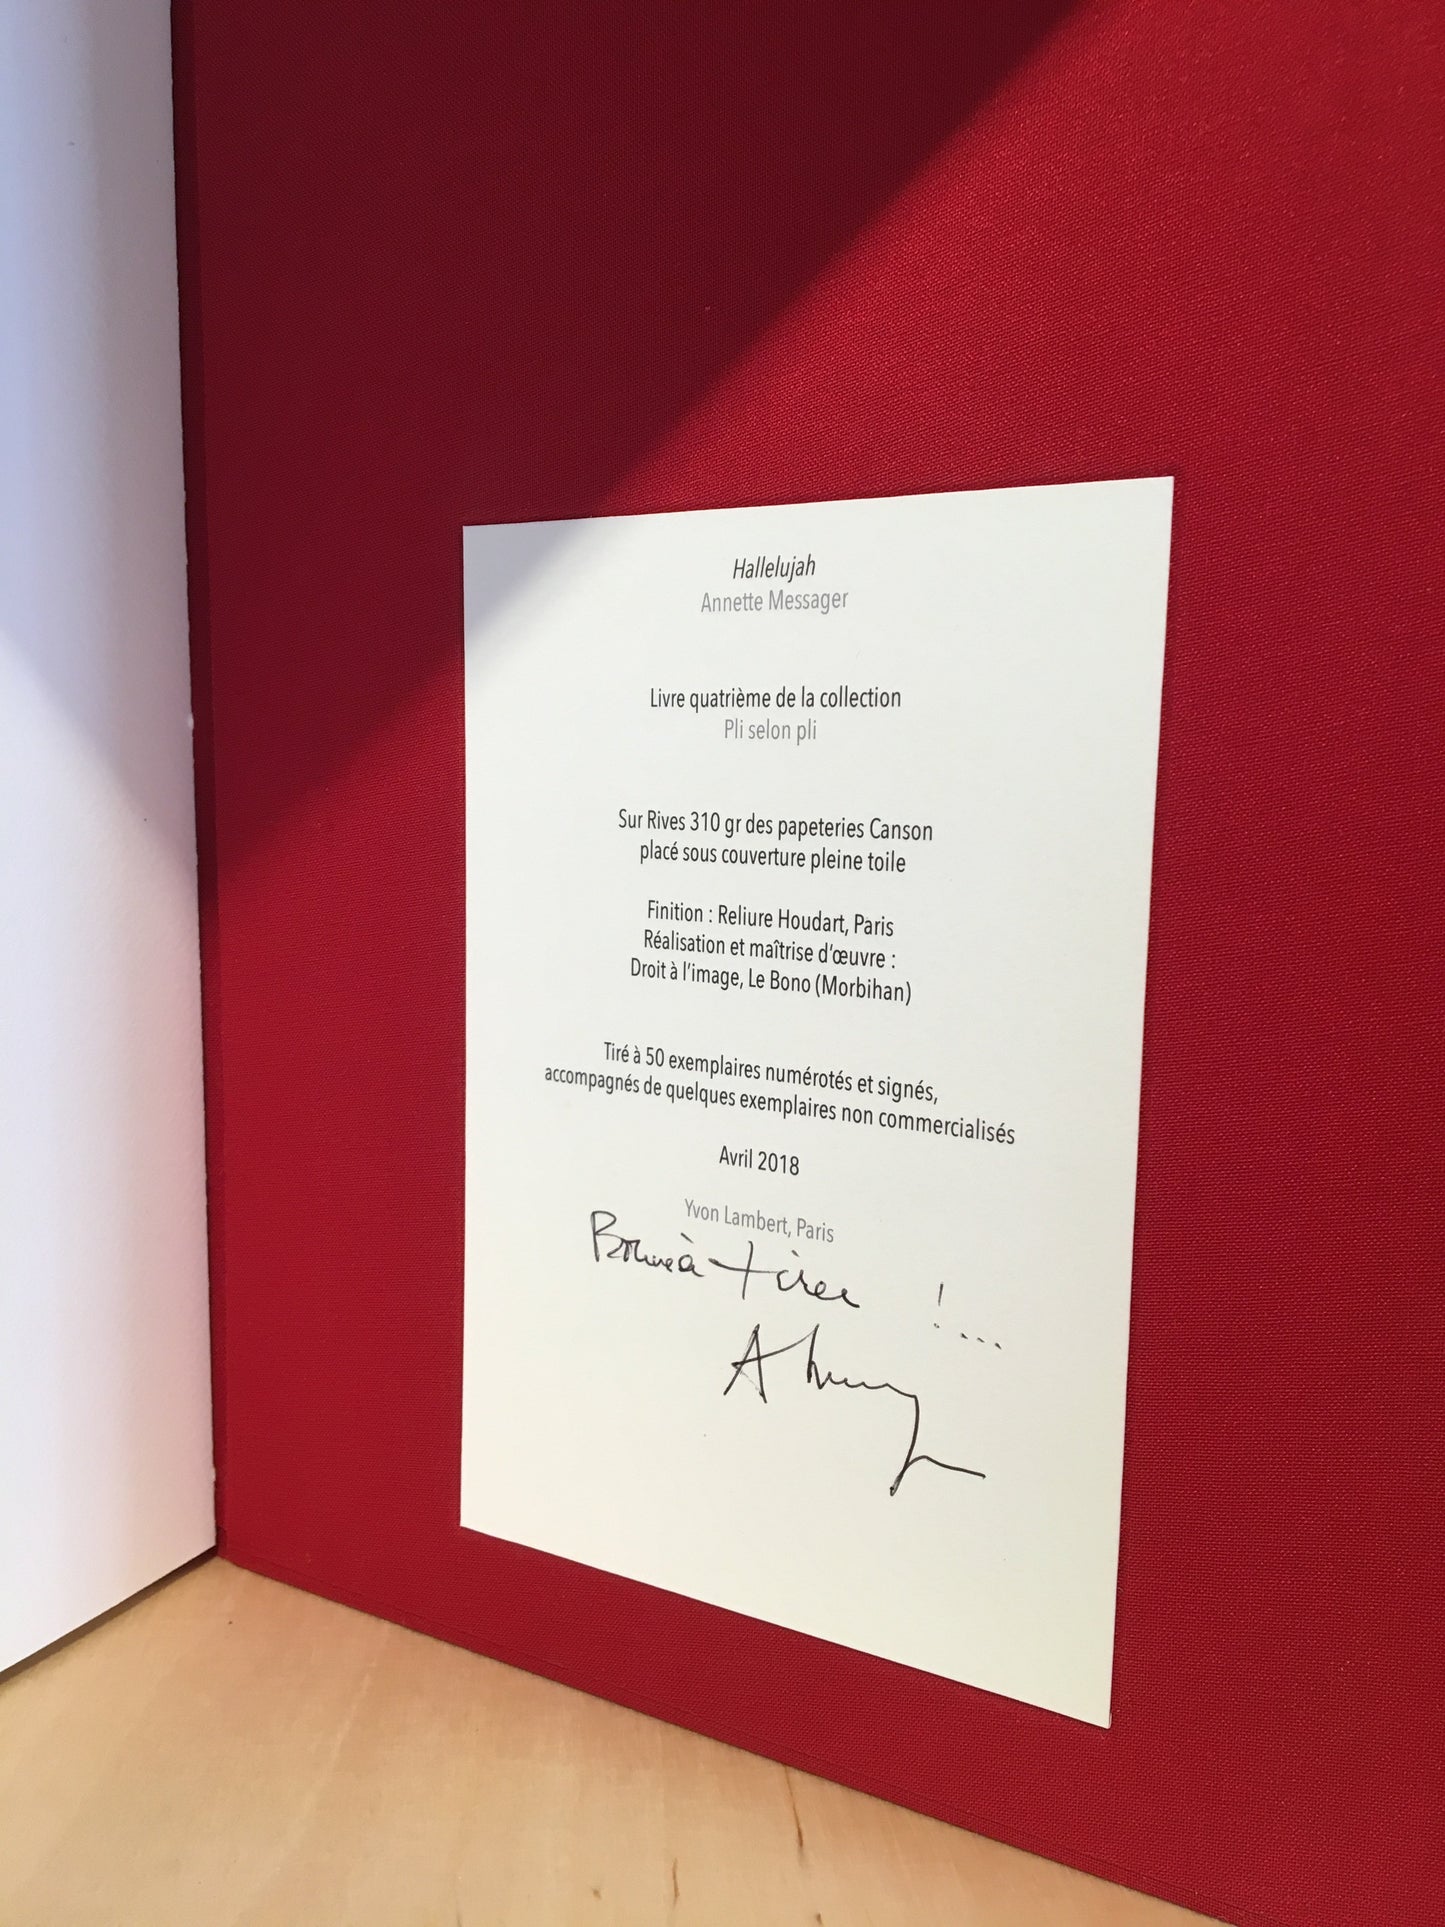 Hallelujah
Annette Messager
Livre quatrième de la collection
Pli selon pli
Sur Rives 310 gr des papeteries Canson
placé sous couverture pleine toile
Finition : Reliure Houdart, Paris
Réalisation et maîtrise d'œuvre :
Droit à l'image, Le Bono (Morbihan)
Tiré à 50 exemplaires numérotés et signés,
accompagnés de quelques exemplaires non commercialisés
Avril 2018
Yvon Lambert, Paris
Bonne à tirer !...